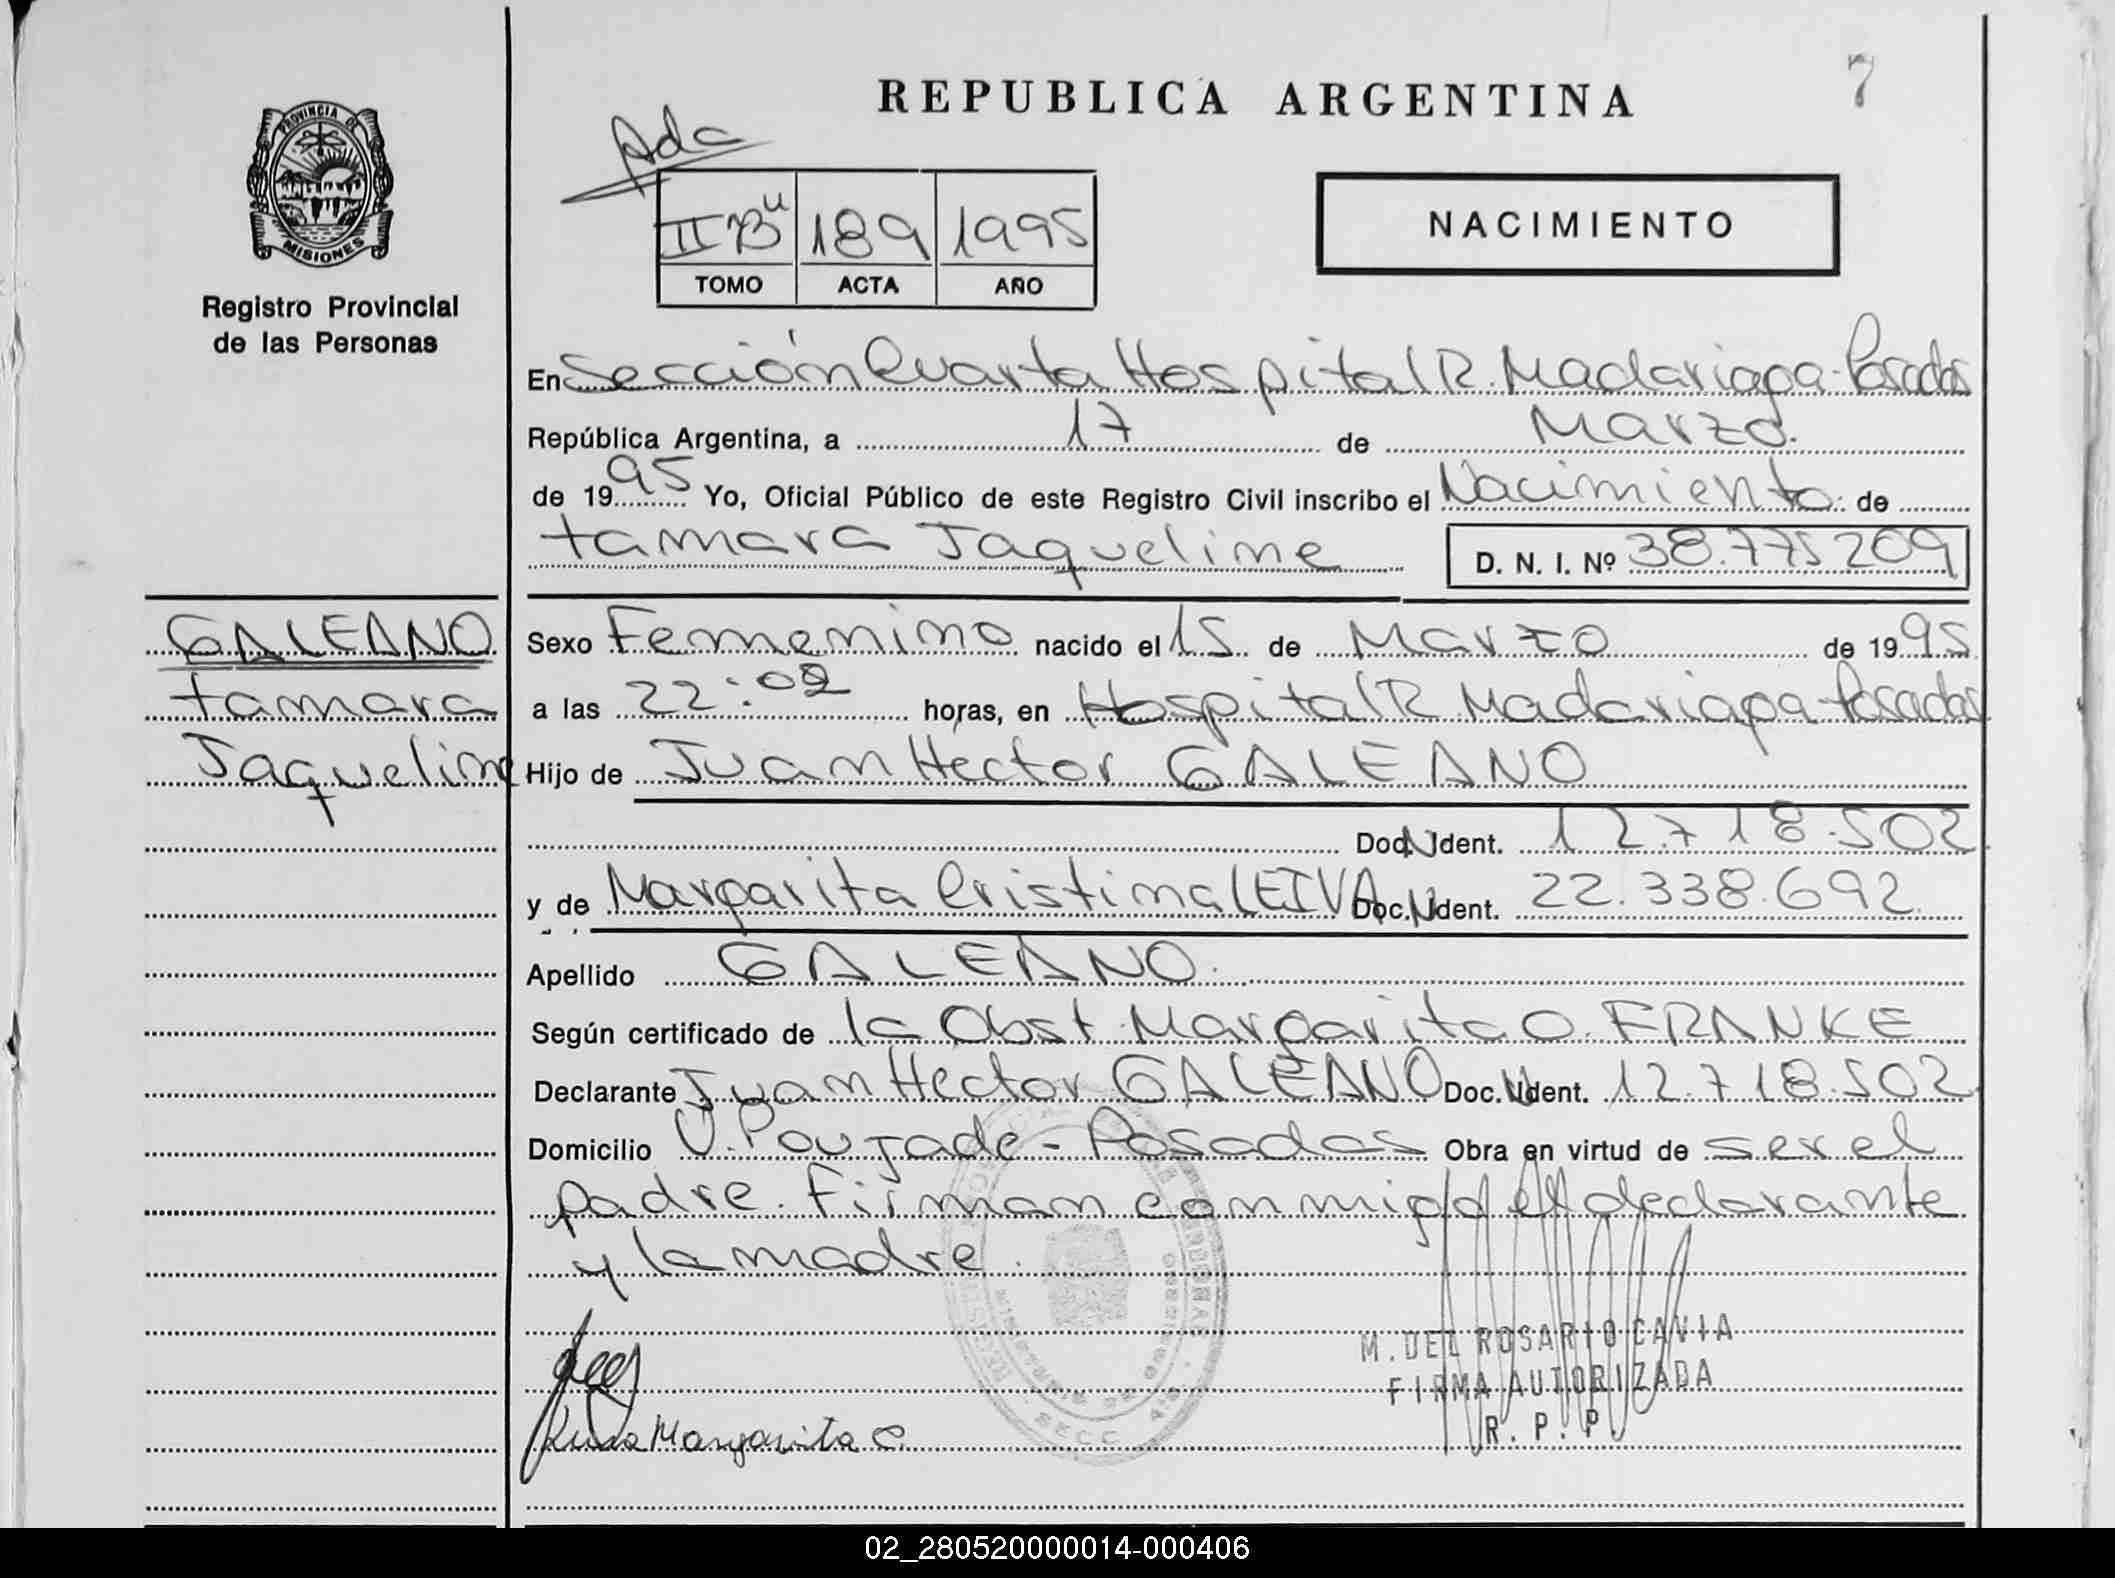 REPUBLICA ARGENTINA
7
PROVINCIA DE
MISIONES
Registro Provincial
de las Personas
Ada
II Bu 189 1995
TOMO ACTA AÑO
NACIMIENTO
En Sección Cuarta Hospital R. Madariaga-Posadas
República Argentina, a 17 de Marzo.
de 1995 Yo, Oficial Público de este Registro Civil inscribo el Nacimiento de
tamara Jaqueline D. N. I. Nº 38.775209
GALEANO
tamara
Jaqueline
Sexo Femenino nacido el 15 de Marzo de 1995
a las 22:02 horas, en Hospital R. Madariaga-Posadas
Hijo de Juan Hector GALEANO
Doc. N Ident. 12.718.502
y de Margarita Cristina LEIVA Doc. N Ident. 22.338.692.
Apellido GALEANO.
Según certificado de la Obst. Margarita O. FRANKE
Declarante Juan Hector GALEANO Doc. N Ident. 12.718.502
Domicilio V. Poujade - Posadas Obra en virtud de ser el
padre. Firman conmigo el declarante
y la madre.
M. DEL ROSARIO CAVIA
FIRMA AUTORIZADA
R. P. P
Margarita C.
02_280520000014-000406